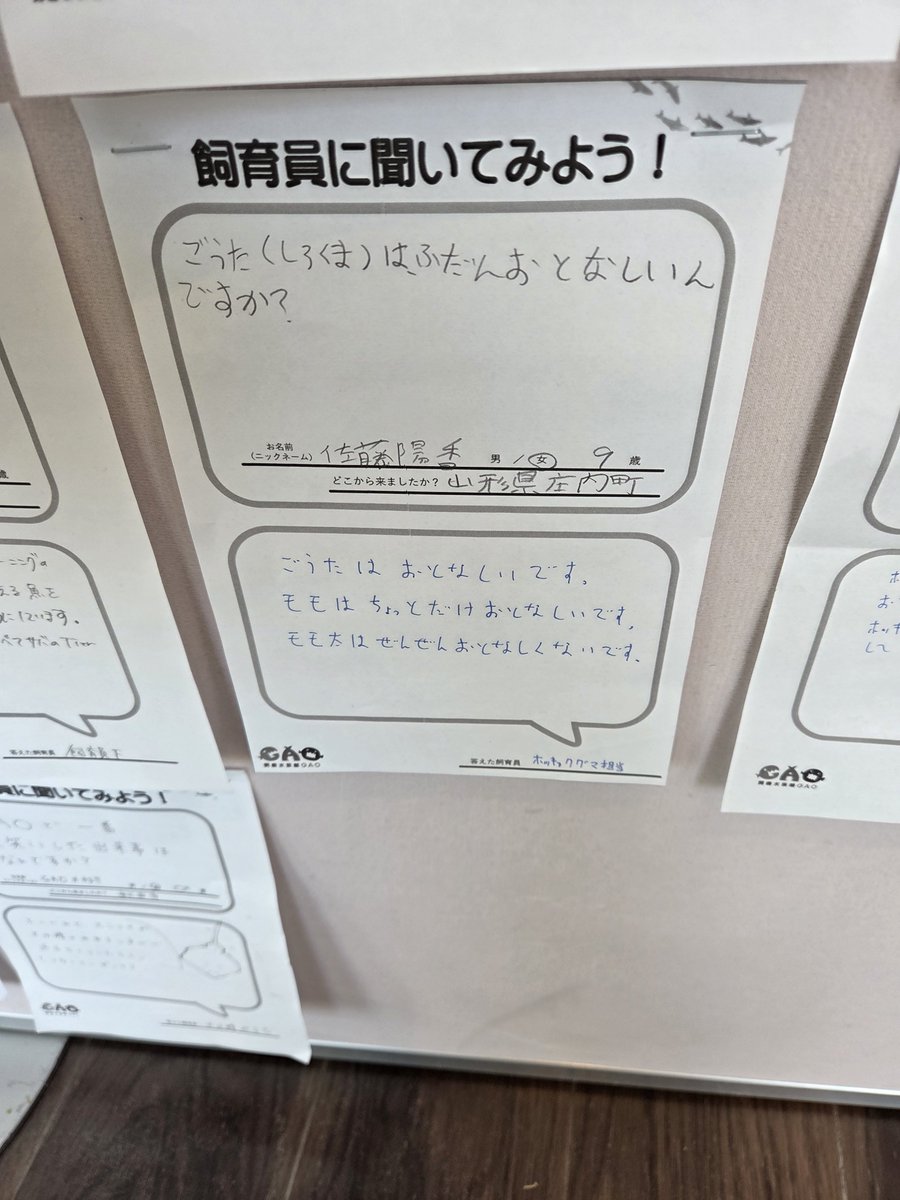 飼育員に聞いてみよう！
ごうた(しろくま)は、ふだんおとなしいん
ですか?
お名前
(ニックネーム) 佐藤陽香 男 / 女 9 歳
どこから来ましたか？ 山形県庄内町
ごうたは おとなしいです。
モモは ちょっとだけ おとなしいです。
モモ太は ぜんぜん おとなしくないです。
GAO
男鹿水族館GAO
答えた飼育員 ホッキョクグマ担当
歳
ーニングの
る魚を
しています。
答えた飼育員 飼育員下
員に聞いてみよう！
なんですか?
GAO
お
ホッキ
して
GAO
男鹿水族館GAO